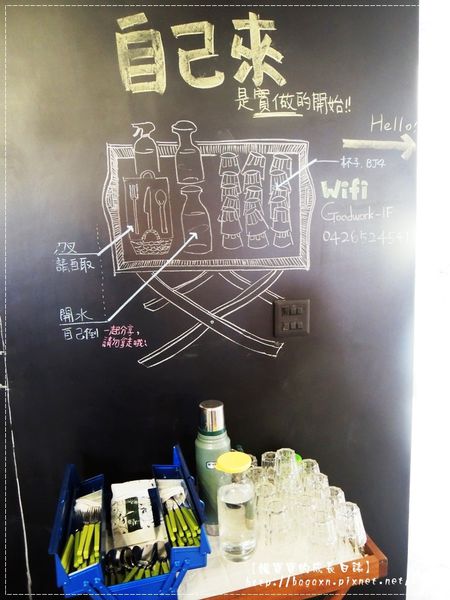 自己來
是實做的開始!!
Hello!
杯子, BJ4
Wifi
Goodwork-1F
0426524541
刀叉
請自取
開水
自己倒
一起分享,
請勿拿走哦!
http://bogoxn.pixnet.net